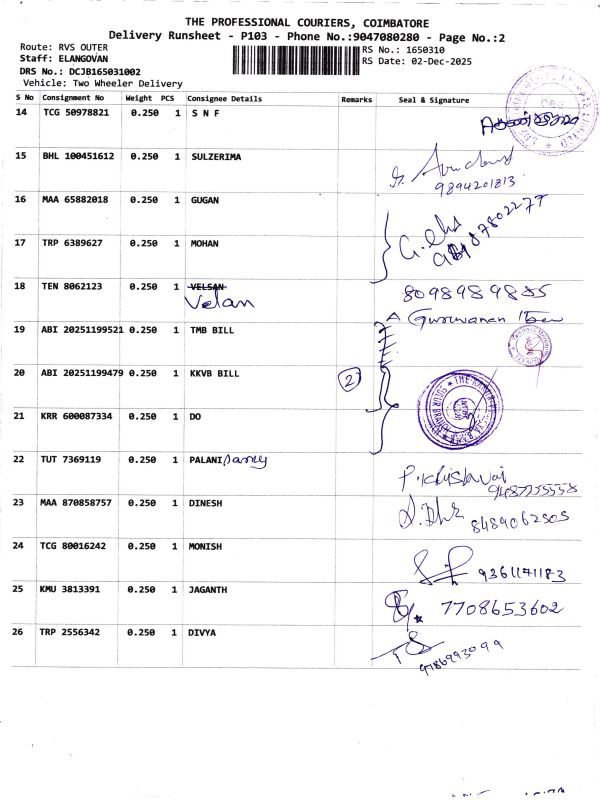 THE PROFESSIONAL COURIERS, COIMBATORE
Delivery Runsheet - P103 - Phone No.:9047080280 - Page No.:2
Route: RVS OUTER
RS No.: 1650310
Staff: ELANGOVAN
RS Date: 02-Dec-2025
DRS No.: DCJB165031002
Vehicle: Two Wheeler Delivery
S No Consignment No Weight PCS Consignee Details Remarks Seal & Signature
14 TCG 50978821 0.250 1 S N F
15 BHL 100451612 0.250 1 SULZERIMA
9894201813
16 MAA 65882018 0.250 1 GUGAN
17 TRP 6389627 0.250 1 MOHAN
18 TEN 8062123 0.250 1 VELSAN
Velan
8098989885
19 ABI 20251199521 0.250 1 TMB BILL
20 ABI 20251199479 0.250 1 KKVB BILL
2
21 KRR 600087334 0.250 1 DO
22 TUT 7369119 0.250 1 PALANI
23 MAA 870858757 0.250 1 DINESH
8489062505
24 TCG 80016242 0.250 1 MONISH
25 KMU 3813391 0.250 1 JAGANTH
7708653602
26 TRP 2556342 0.250 1 DIVYA
9786993099